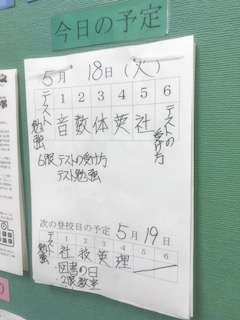 今日の予定
5月 18日(火)
テスト勉強 1 2 3 4 5 6
音 数 体 英 社 テストの受け方
6限 テストの受け方
テスト勉強
次の登校日の予定 5月 19日
テスト勉強 1 2 3 4 5 6
社 技 英 理
・図書の日
2限教室